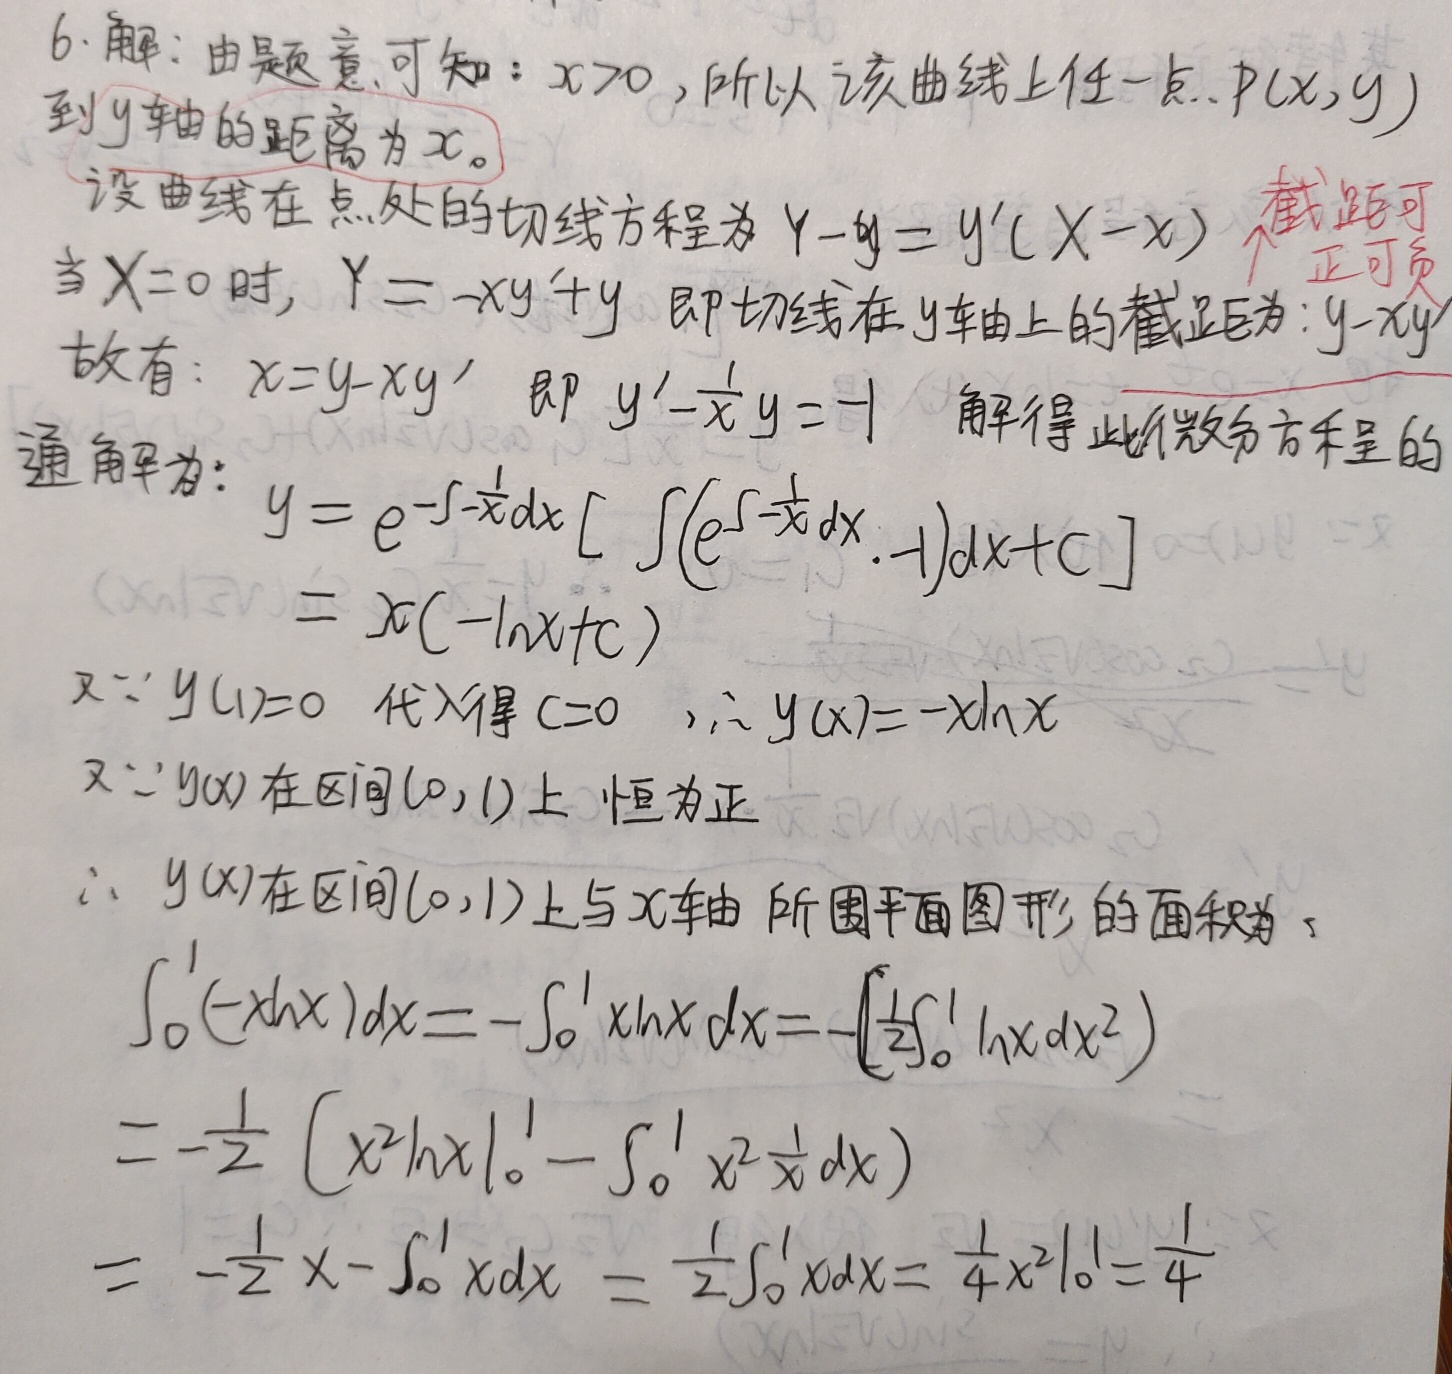 6. 解：由题意可知：x>0，所以该曲线上任一点P(x,y)
到y轴的距离为x。
设曲线在点处的切线方程为 Y-y=y'(X-x)
截距可
正可负
当X=0时, Y=-xy'+y 即切线在y轴上的截距为: y-xy'
故有: x=y-xy' 即 y'-1/x y=-1 解得此微分方程的
通解为:
y=e^{-∫-1/x dx}[∫(e^{∫-1/x dx}·-1)dx+C]
=x(-lnx+C)
又∵ y(1)=0 代入得 C=0 ,∴ y(x)=-xlnx
又∵ y(x)在区间(0,1)上恒为正
∴ y(x)在区间(0,1)上与x轴所围平面图形的面积为:
∫₀¹(-xlnx)dx=-∫₀¹xlnxdx=-(1/2∫₀¹lnxdx²)
=-1/2(x²lnx|₀¹-∫₀¹x²1/x dx)
=-1/2×-∫₀¹xdx=1/2∫₀¹xdx=1/4x²|₀¹=1/4